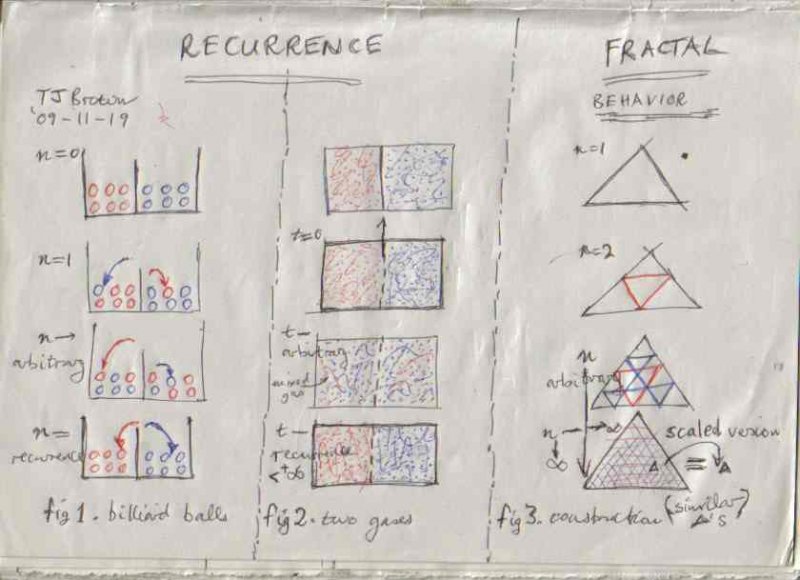 RECURRENCE
FRACTAL
BEHAVIOR
TJ Brown
'09-11-19
n=0
n=1
n→
arbitrary
n=
recurrence
fig 1. billiard balls
t=0
t—
arbitrary
mixed
gas
t—
recurrence
<+∞
fig 2. two gases
n=1
n=2
n
arbitrary
n→∞
∞
scaled version
fig 3. construction (similar
Δ's)